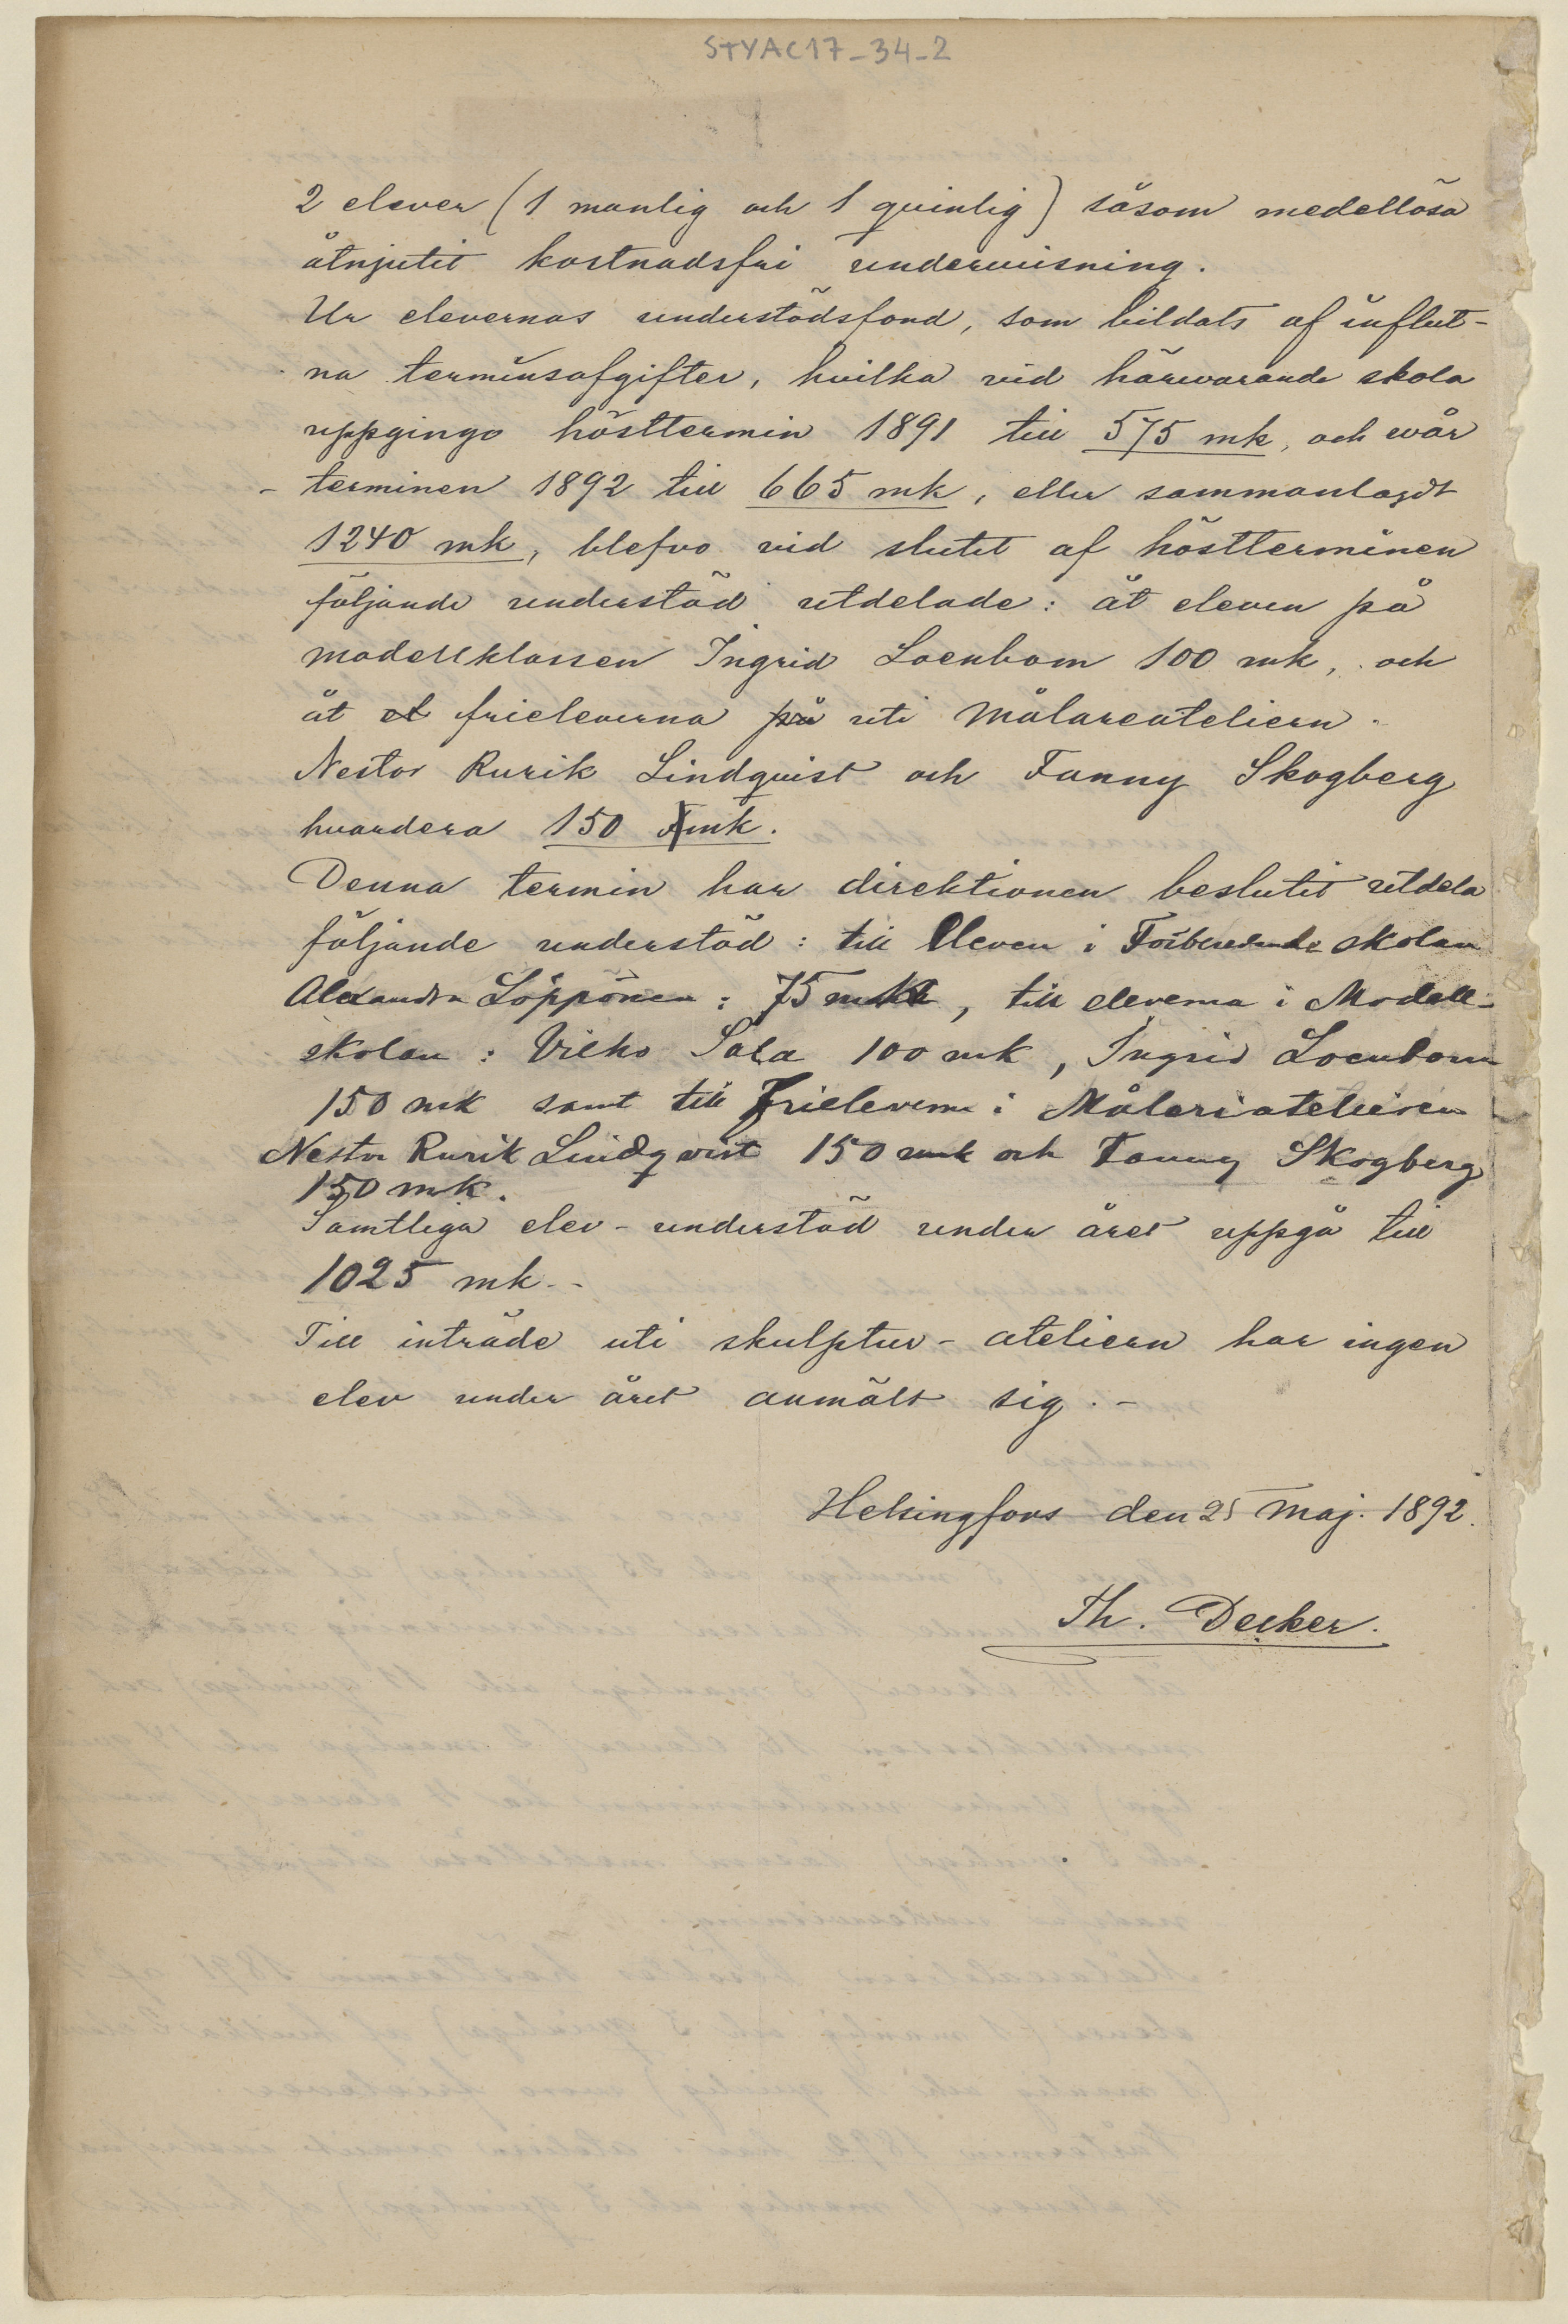 STYAC17-34-2
2 elever (1 manlig och 1 qvinlig) såsom medellösa
åtnjutit kostnadsfri undervisning.
Ur elevernas understödsfond, som bildats af influt-
na terminsafgifter, hvilka vid härvarande skola
uppgingo hösttermin 1891 till 575 mk, och vår
- terminen 1892 till 665 mk, eller sammanlagdt
1240 mk, blefvo vid slutet af höstterminen
följande understöd utdelade: åt eleven på
modellklassen Ingrid Loenbom 100 mk, och
åt el frieleverna på uti Målareateliern.
Nestor Rurik Lindqvist och Fanny Skogberg
hvardera 150 Fmk.
Denna termin har direktionen beslutit utdela
följande understöd: till Eleven i Förberedande skolan
Alexandra Löppönen: 75 mk, till eleverna i Modell-
skolan: Vilho Sala 100 mk, Ingrid Loenbom
150 mk samt till Frieleverna i Måleriatelieren
Nestor Rurik Lindqvist 150 mk och Fanny Skogberg
150 mk.
Samtliga elev-understöd under året uppgå till
1025 mk--
Till inträde uti skulptur-ateliern har ingen
elev under året anmält sig.-
Helsingfors den 25 Maj. 1892.
Th. Decker.